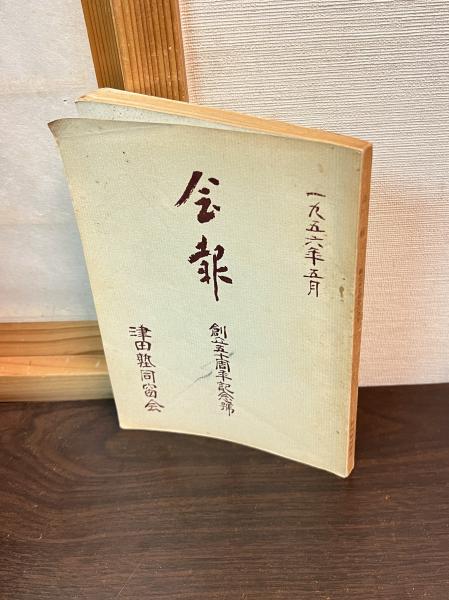 一九五六年五月
会報
創立五十周年記念號
津田塾同窓会